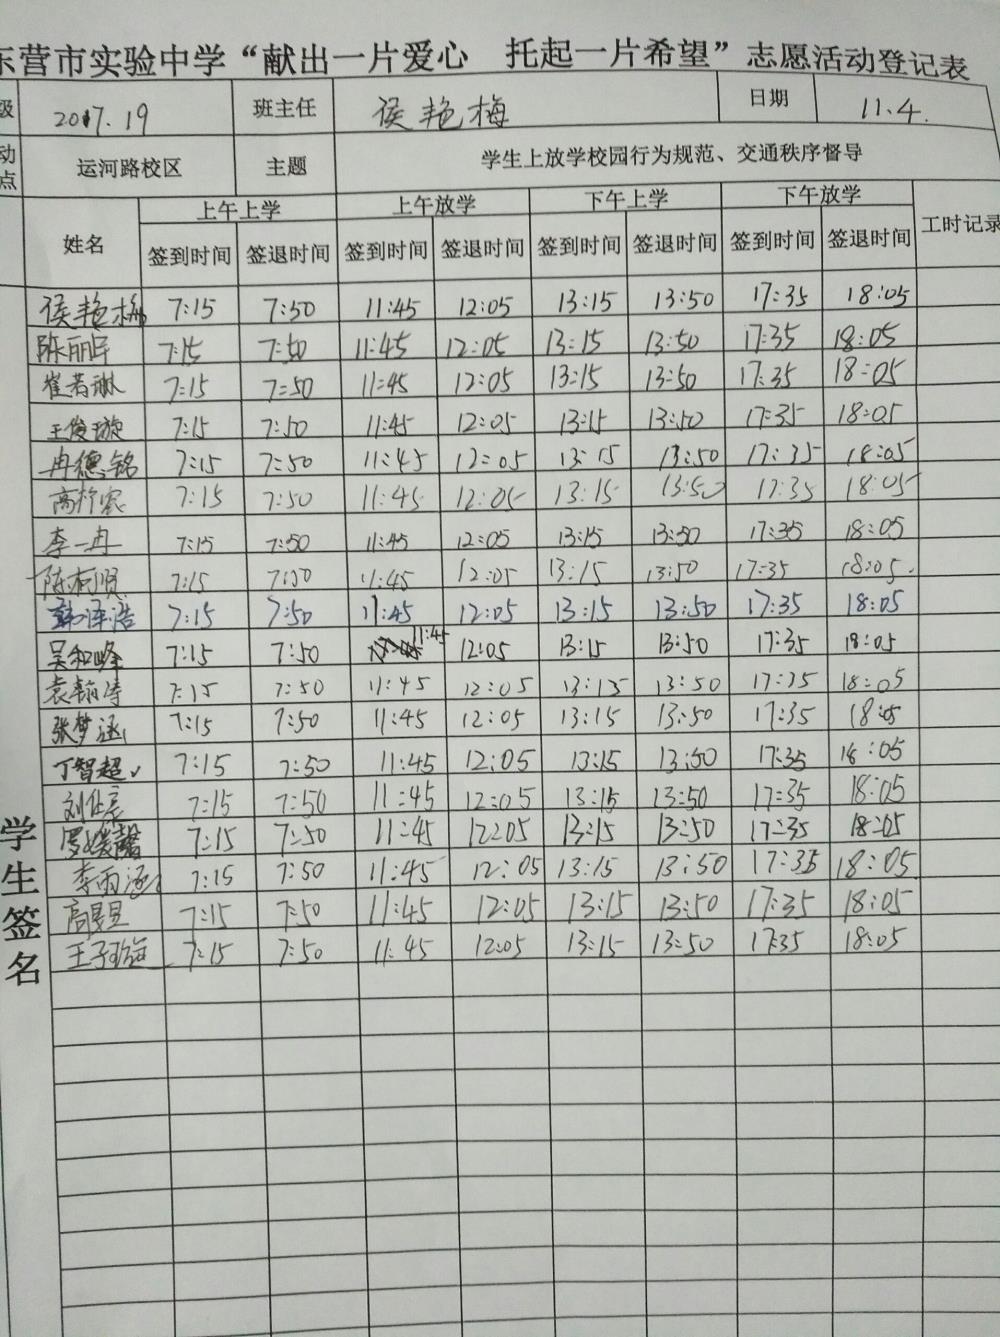 东营市实验中学“献出一片爱心 托起一片希望”志愿活动登记表
级 2017.19 班主任 侯艳梅 日期 11.4.
动点 运河路校区 主题 学生上放学校园行为规范、交通秩序督导
姓名 上午上学 上午放学 下午上学 下午放学 工时记录
签到时间 签退时间 签到时间 签退时间 签到时间 签退时间 签到时间 签退时间
侯艳梅 7:15 7:50 11:45 12:05 13:15 13:50 17:35 18:05
陈丽军 7:15 7:50 11:45 12:05 13:15 13:50 17:35 18:05
崔若琳 7:15 7:50 11:45 12:05 13:15 13:50 17:35 18:05
王俊璇 7:15 7:50 11:45 12:05 13:15 13:50 17:35 18:05
冉德铭 7:15 7:50 11:45 12:05 13:15 13:50 17:35 18:05
7:15 7:50 11:45 12:05 13:15 13:50 17:35 18:05
李一冉 7:15 7:50 11:45 12:05 13:15 13:50 17:35 18:05
7:15 7:50 11:45 12:05 13:15 13:50 17:35 18:05.
韩泽浩 7:15 7:50 11:45 12:05 13:15 13:50 17:35 18:05
吴和峰 7:15 7:50 11:45 12:05 13:15 13:50 17:35 18:05
袁翰涛 7:15 7:50 11:45 12:05 13:15 13:50 17:35 18:05
张梦涵 7:15 7:50 11:45 12:05 13:15 13:50 17:35 18:05
丁智超 7:15 7:50 11:45 12:05 13:15 13:50 17:35 18:05
7:15 7:50 11:45 12:05 13:15 13:50 17:35 18:05
罗媛馨 7:15 7:50 11:45 12:05 13:15 13:50 17:35 18:05
李雨涵 7:15 7:50 11:45 12:05 13:15 13:50 17:35 18:05
7:15 7:50 11:45 12:05 13:15 13:50 17:35 18:05
王子璇 7:15 7:50 11:45 12:05 13:15 13:50 17:35 18:05
学生签名